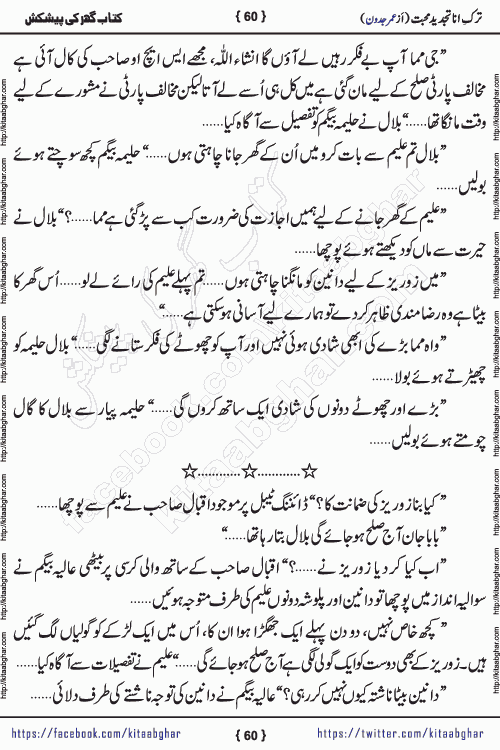 ترکِ انا تجدیدِ محبت (از عمر جدون) { 60 } کتاب گھر کی پیشکش
”جی مما آپ بے فکر رہیں لے آؤں گا انشاء اللہ، مجھے ایس ایچ او صاحب کی کال آئی ہے
مخالف پارٹی صلح کے لیے مان گئی ہے میں کل ہی اُسے لے آتا لیکن مخالف پارٹی نے مشورے کے لیے
وقت مانگا تھا......“ بلال نے حلیمہ بیگم کو تفصیل سے آگاہ کیا......
”بلال تم علیم سے بات کرو میں اُن کے گھر جانا چاہتی ہوں......“ حلیمہ بیگم کچھ سوچتے ہوئے
بولیں......
”علیم کے گھر جانے کے لیے ہمیں اجازت کی ضرورت کب سے پڑ گئی ہے مما......؟“ بلال نے
حیرت سے ماں کو دیکھتے ہوئے پوچھا......
”میں زوریز کے لیے دانین کو مانگنا چاہتی ہوں...... تم پہلے علیم کی رائے لے لو...... اُس گھر کا
بیٹا ہے وہ رضا مندی ظاہر کر دے تو ہمارے لیے آسانی ہو سکتی ہے......“
”واہ مما بڑے کی ابھی شادی ہوئی نہیں اور آپ کو چھوٹے کی فکر ستانے لگی......“ بلال حلیمہ کو
چھیڑتے ہوئے بولا......
”بڑے اور چھوٹے دونوں کی شادی ایک ساتھ کروں گی......“ حلیمہ پیار سے بلال کا گال
چومتے ہوئے بولیں......
☆............☆............☆
”کیا بنا زوریز کی ضمانت کا؟“ ڈائننگ ٹیبل پر موجود اقبال صاحب نے علیم سے پوچھا......
”بابا جان آج صلح ہو جائے گی بلال بتا رہا تھا......“
”اب کیا کر دیا زوریز نے......؟“ اقبال صاحب کے ساتھ والی کرسی پر بیٹھی عالیہ بیگم نے
سوالیہ انداز میں پوچھا تو دانین اور پلوشہ دونوں علیم کی طرف متوجہ ہوئیں......
”کچھ خاص نہیں، دو دن پہلے ایک جھگڑا ہوا ان کا، اُس میں ایک لڑکے کو گولیاں لگ گئیں
ہیں۔ زوریز کے بھی دوست کو ایک گولی لگی ہے آج صلح ہو جائے گی......“ علیم نے تفصیلات سے آگاہ کیا......
”دانین بیٹا ناشتہ کیوں نہیں کر رہی؟“ عالیہ بیگم نے دانین کی توجہ ناشتے کی طرف دلائی......
https://facebook.com/kitaabghar { 60 } https://twitter.com/kitaabghar
http://kitaabghar.com http://kitaabghar.com http://kitaabghar.com http://kitaabghar.com http://kitaabghar.com http://kitaabghar.com http://kitaabghar.com http://kitaabghar.com
http://kitaabghar.com http://kitaabghar.com http://kitaabghar.com http://kitaabghar.com http://kitaabghar.com http://kitaabghar.com http://kitaabghar.com http://kitaabghar.com
کتاب گھر کی پیشکش
kitaabghar.com
facebook.com/kitaabghar